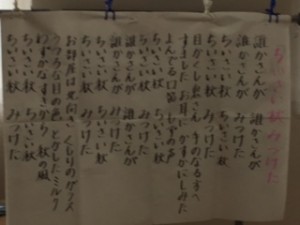 ちいさい秋みつけた
誰かさんが 誰かさんが
誰かさんが みつけた
ちいさい秋 ちいさい秋
ちいさい秋 みつけた
目かくし鬼さん 手のなる方へ
すましたお耳に かすかにしみた
よんでる口笛 もずの声
ちいさい秋 ちいさい秋
ちいさい秋 みつけた
誰かさんが 誰かさんが
誰かさんが みつけた
ちいさい秋 ちいさい秋
ちいさい秋 みつけた
お部屋は北向き くもりのガラス
うつろな目の色 とかしたミルク
わずかなすきから 秋の風
ちいさい秋 ちいさい秋
ちいさい秋 みつけた